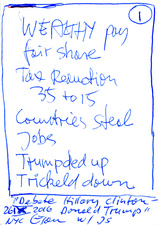 1
WEALTHY pay
fair share
Tax Reduction
35 to 15
Countries steal
Jobs
Trumpded up
Trickeld down
"Debate Hillary Clinton -
2016 Donald Trump"
NYC w/